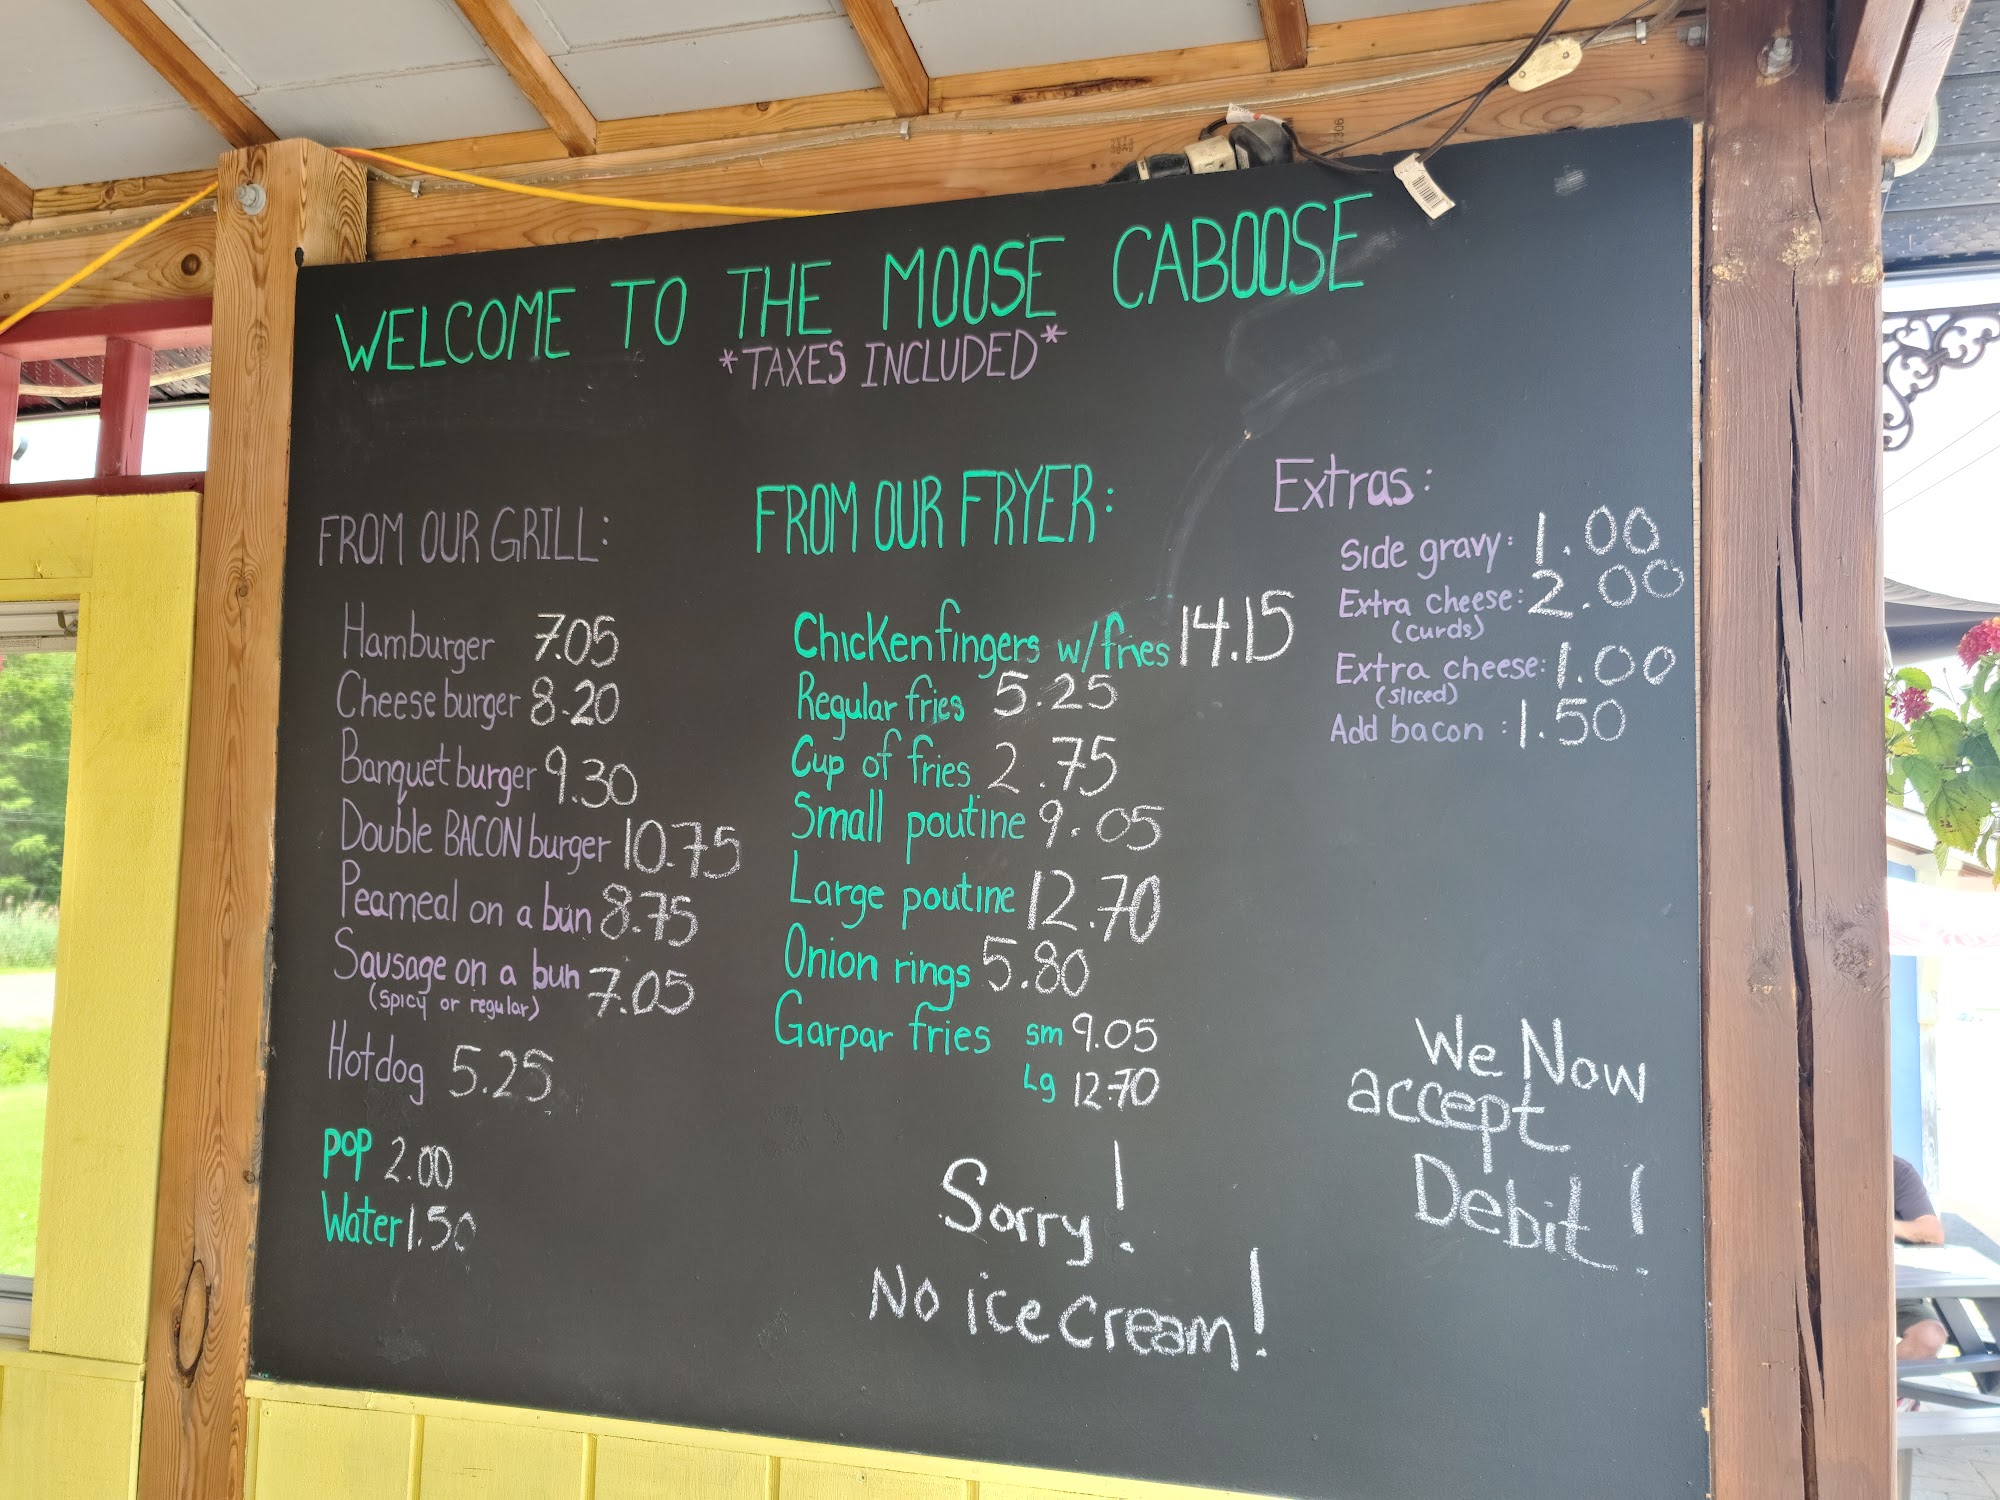 WELCOME TO THE MOOSE CABOOSE
*TAXES INCLUDED*
FROM OUR GRILL:
Hamburger 7.05
Cheese burger 8.20
Banquet burger 9.30
Double BACON burger 10.75
Peameal on a bun 8.75
Sausage on a bun 7.05
(spicy or regular)
Hotdog 5.25
POP 2.00
Water 1.50
FROM OUR FRYER:
Chicken fingers w/fries 14.15
Regular fries 5.25
Cup of fries 2.75
Small poutine 9.05
Large poutine 12.70
Onion rings 5.80
Garpar fries sm 9.05
Lg 12.70
Sorry!
No ice cream!
Extras:
Side gravy: 1.00
Extra cheese: 2.00
(curds)
Extra cheese: 1.00
(sliced)
Add bacon: 1.50
We Now
accept
Debit!